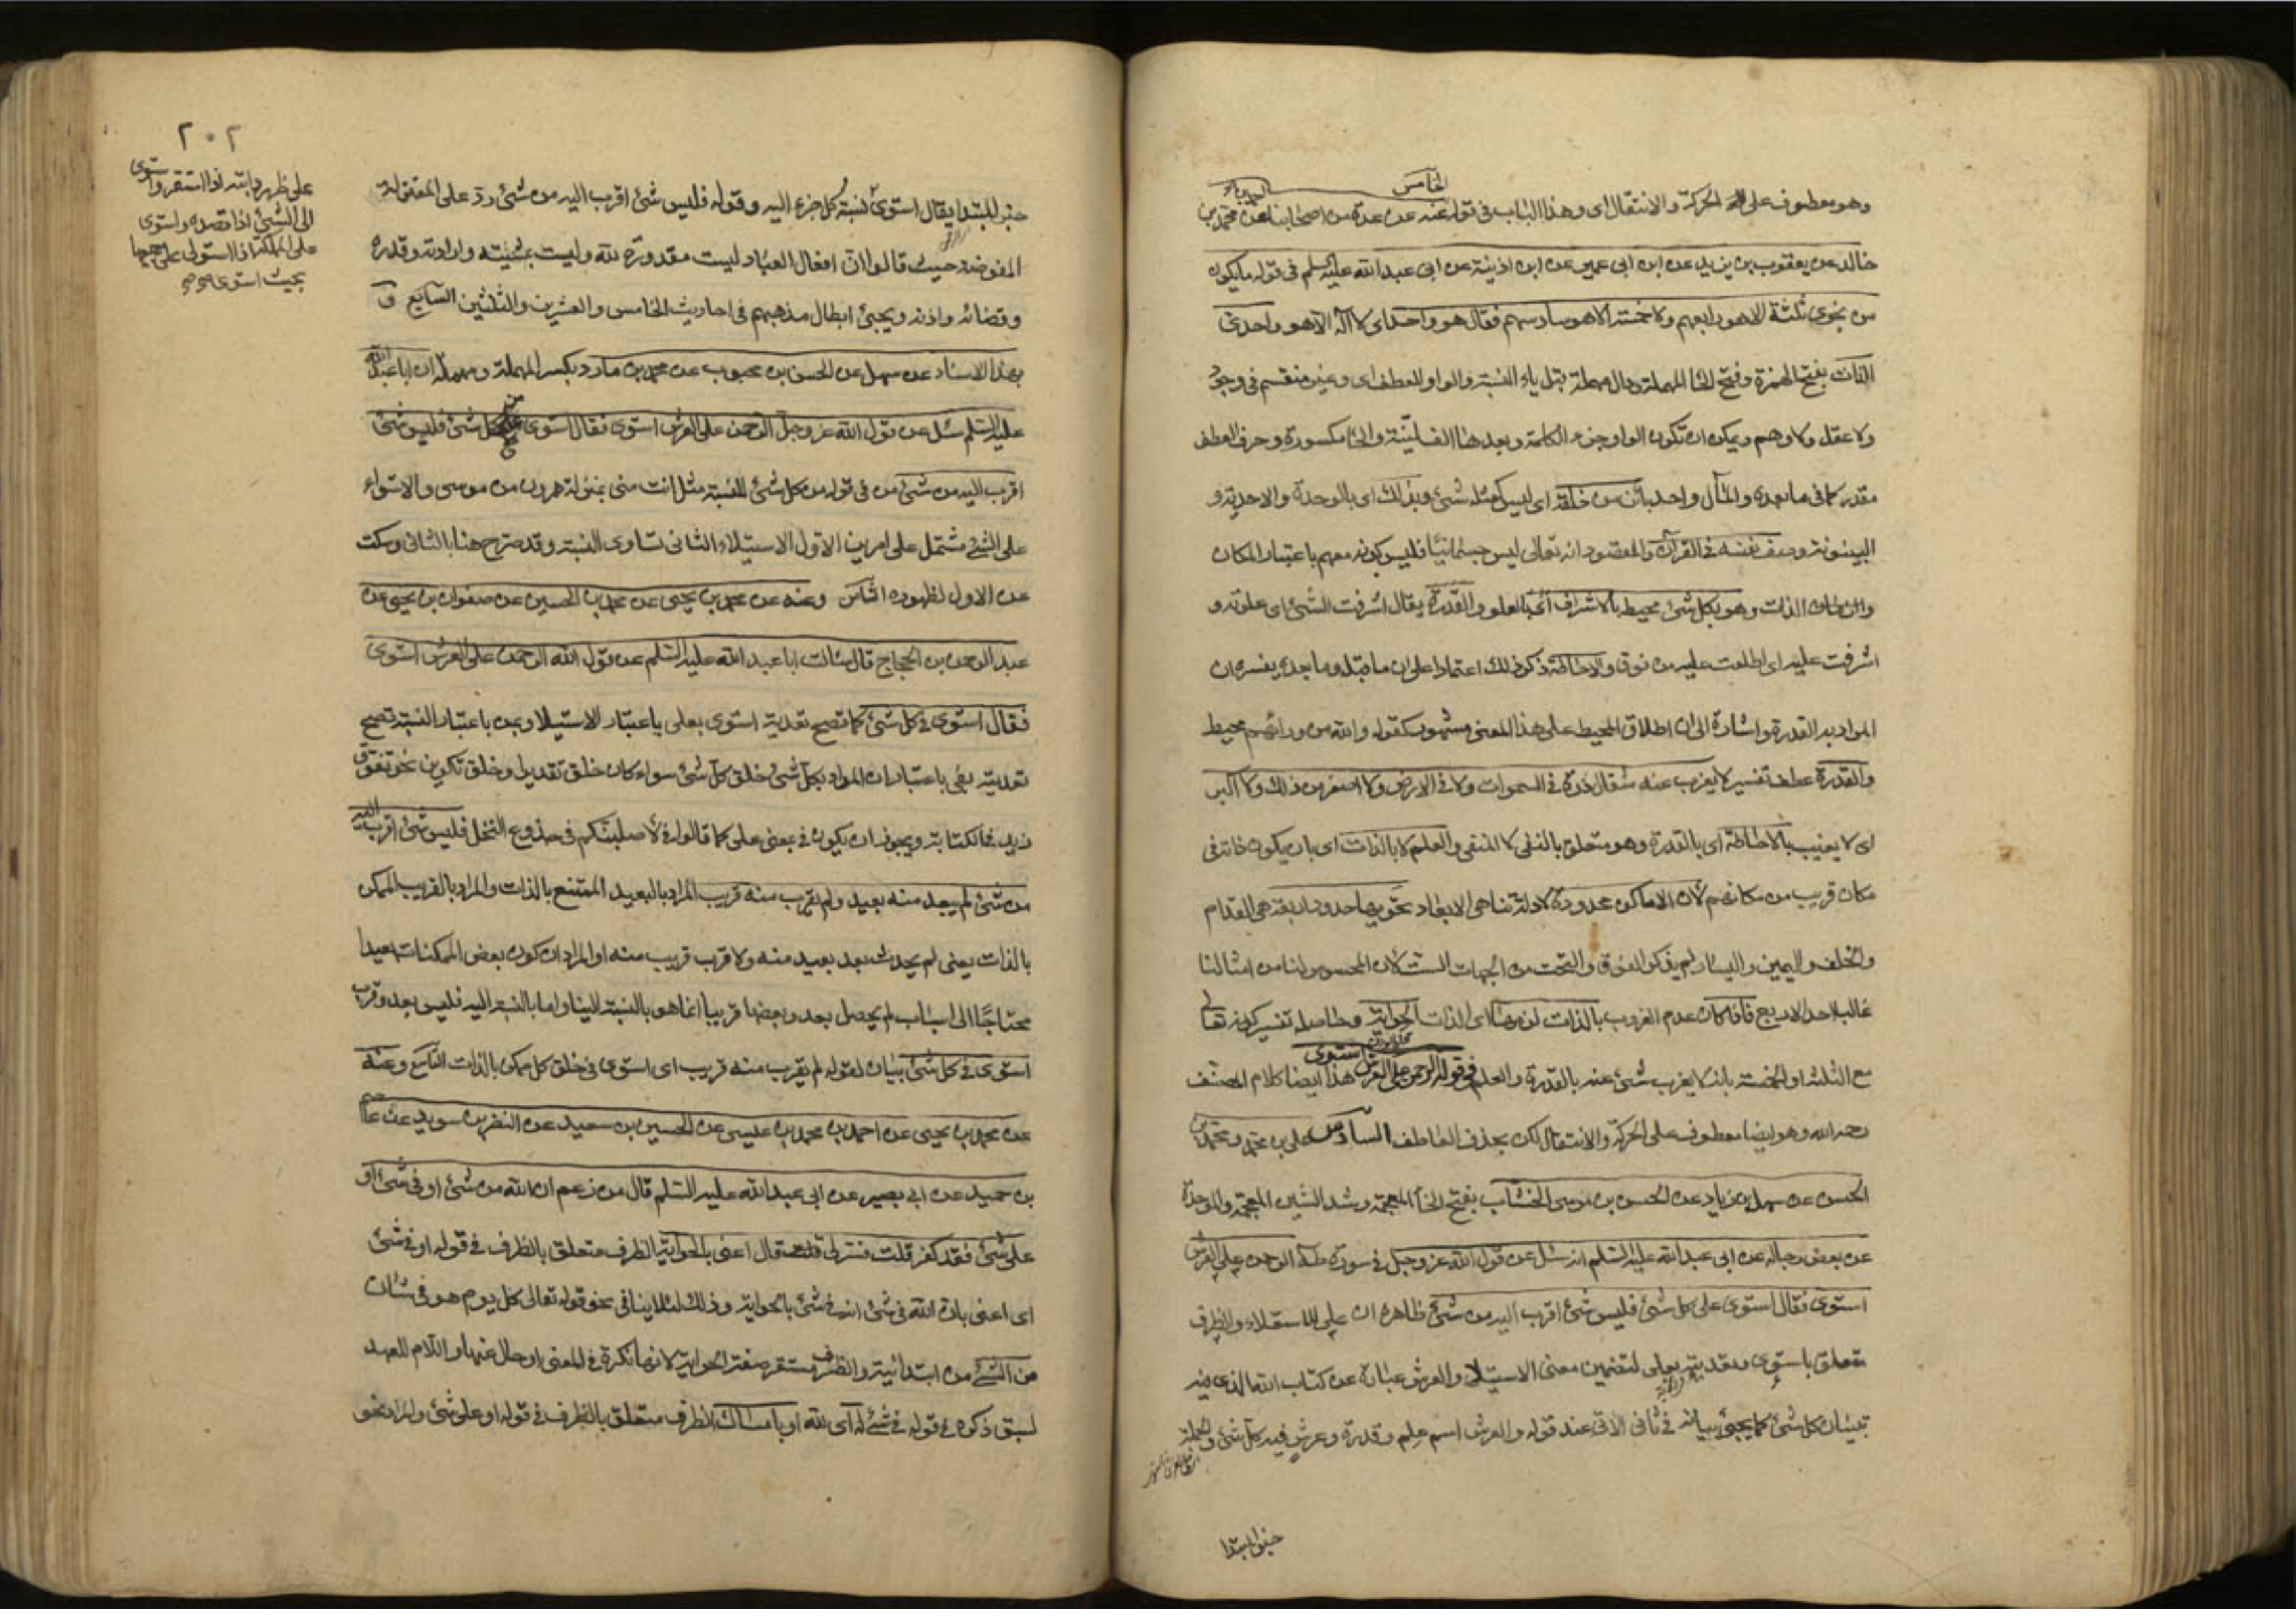 الخامس
وهو معطوف على الحركة والانتقال اى وهذا الباب فى قوله عنه عن عدة من اصحابنا عن محمد بن
خالد عن يعقوب بن يزيد عن ابن ابى عمير عن ابن اذينة عن ابى عبد الله عليه السلم فى قوله ما يكون
من نجوى ثلثة الا هو رابعهم ولا خمسة الا هو سادسهم فقال هو واحد اى لا اله الا هو واحدىّ
الذات بفتح الهمزة وفتح الحا المهملة ودال مهملة قبل ياء النسبة والواو للعطف اى وغير منقسم فى وجود
ولا عقل ولا وهم ويمكن ان تكون الواو جزء الكلمة وبعدها الف لينة والحا مكسورة وحرف العطف
مقدر كما فى ما بعده والمآل واحد بائن من خلقه اى ليس كمثله شئ وبذلك اى بالوحدة والاحدية و
البينونة وصف نفسه فى القرآن والمقصود انه تعالى ليس جسمانيا فليس كونه معهم باعتبار المكان
الذات وهو بكل شئ محيط بالاشراف اى بالعلو والقدرة يقال اشرفت الشئ اى علوته و
اشرفت عليه اى اطلعت عليه من فوق والاحاطة ذكر ذلك اعتمادا على ان ما قبله وما بعده يفسره ان
المراد به القدرة واشارة الى ان اطلاق المحيط على هذا المعنى مشهور كقوله والله من ورائهم محيط
والقدرة عطف تفسير لا يعزب عنه مثقال ذرة فى السموات ولا فى الارض ولا اصغر من ذلك ولا اكبر
اى لا يغيب بالاحاطة اى بالقدرة وهو متعلق بالنفى لا المنفى والعلم لا بالذات اى بان يكون ذاته فى
مكان قريب من مكانهم لأن الاماكن محدودة لادلة تناهى الابعاد تحويها حدود اربعة هى القدام
والخلف واليمين واليسار لم يذكر الفوق والتحت من الجهات الست لان المحسوس لنا من امثالنا
غالبا احد الاربع فاذا كان عدم العزوب بالذات لزمها اى الذات الحواية وحاصله تفسير كونه تعالى
مع الثلثة او الخمسة بانه لا يعزب شئ عنه بالقدرة والعلم فى قوله الرحمن على العرش استوى هذا ايضا كلام المصنف
رحمه الله وهو ايضا معطوف على الحركة والانتقال لكن بحذف العاطف السادس على بن محمد ومحمد بن
الحسن عن سهل بن زياد عن الحسن بن موسى الخشاب بفتح الخا المعجمة وشد الشين المعجمة والموحدة
عن بعض رجاله عن ابى عبد الله عليه السلم انه سئل عن قول الله عز وجل فى سورة طه الرحمن على العرش
استوى فقال استوى على كل شئ فليس شئ اقرب اليه من شئ ظاهره ان على للاستعلاء والظرف
متعلق باستوى وتعديته بعلى لتضمين معنى الاستيلا والعرش عبارة عن كتاب الله الذى فيه
تبيان كل شئ كما يجئ بيانه فى ثانى الاتى عند قوله والعرش اسم علم وقدرة وعرش فيه كل شئ والجملة
خبر المبتدا
٢٠٢
خبر المبتدا يقال استوى نسبة كل جزء اليه وقوله فليس شئ اقرب اليه من شئ رد على المعتزلة
المفوضة حيث قالوا ان افعال العباد ليست مقدورة لله وليست بمشيته وارادته وقدره
وقضائه واذنه ويجئ ابطال مذهبهم فى احاديث الخامس والعشرين والثلثين السابع و
بهذا الاسناد عن سهل عن الحسن بن محبوب عن محمد بن مارد بكسر المهملة ومهملة ان ابا عبد الله
عليه السلم سئل عن قول الله عز وجل الرحمن على العرش استوى فقال استوى من كل شئ فليس شئ
اقرب اليه من شئ من فى قوله من كل شئ للنسبة مثل انت منى بمنزلة هرون من موسى والاستواء
على الشئ مشتمل على امرين الاول الاستيلاء الثانى تساوى النسبة وقد صرح هنا بالثانى وسكت
عن الاول لظهوره الثامن وعنه عن محمد بن يحيى عن محمد بن الحسين عن صفوان بن يحيى عن
عبد الرحمن بن الحجاج قال سالت ابا عبد الله عليه السلم عن قول الله الرحمن على العرش استوى
فقال استوى فى كل شئ كما تصح تعدية استوى بعلى باعتبار الاستيلا وبمن باعتبار النسبة تصح
تعديته بفى باعتبار ان المراد بكل شئ خلق كل شئ سواء كان خلق تقدير او خلق تكوين نحو تفوق
زيد فى الكتابة ويجوز ان يكون فى بمعنى على كما قالوا فى لأصلبنكم فى جذوع النخل فليس شئ اقرب اليه
من شئ لم يبعد منه بعيد ولم يقرب منه قريب المراد بالبعيد الممتنع بالذات والمراد بالقريب الممكن
بالذات يعنى لم يحدث بعد بعيد منه ولا قرب قريب منه او المراد ان كون بعض الممكنات بعيدا
محتاجا الى اسباب لم يحصل بعد وبعضها قريبا انما هو بالنسبة الينا واما بالنسبة اليه فليس بعد وقرب
استوى فى كل شئ بيان لقوله لم يقرب منه قريب اى استوى فى خلق كل ممكن بالذات التاسع وعنه
عن محمد بن يحيى عن احمد بن محمد بن عيسى عن الحسين بن سعيد عن النضر بن سويد عن عاصم
بن حميد عن ابى بصير عن ابى عبد الله عليه السلم قال من زعم ان الله من شئ او فى شئ او
على شئ فقد كفر قلت فسر لى قال اعنى بالحواية الظرف متعلق بالظرف فى قوله او فى شئ
اى اعنى بان الله فى شئ انه فى شئ بالحواية وذلك لئلا ينافى نحو قوله تعالى كل يوم هو فى شان
من الشئ من ابتدائية والظرف مستقر صفة الحواية لانها نكرة فى المعنى او حال عنها واللام للعهد
لسبق ذكره فى قوله فى شئ له اى لله او بامساك الظرف متعلق بالظرف فى قوله او على شئ والمراد نحو
على ظهر دابته اذا استقر واستوى
الى الشئ اذا قصده واستوى
على المملكة اذا استولى على جميعها
بحيث استوى